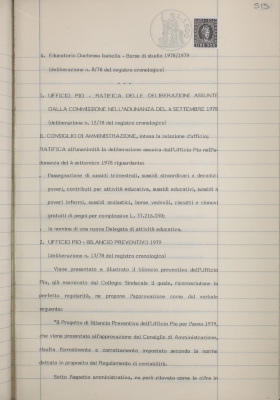 515
4. Educatorio Duchessa Isabella - Borse di studio 1978/1979
(deliberazione n. 8/78 del registro cronologico)
1. UFFICIO PIO - RATIFICA DELLE DELIBERAZIONI ASSUNTE
DALLA COMMISSIONE NELL'ADUNANZA DEL 4 SETTEMBRE 1978
(deliberazione n. 12/78 del registro cronologico)
IL CONSIGLIO DI AMMINISTRAZIONE, intesa la relazione d'ufficio,
RATIFICA all'unanimità le deliberazioni assunte dall'Ufficio Pio nell'a-
dunanza del 4 settembre 1978 riguardante:
l'assegnazione di sussidi trimestrali, sussidi straordinari a decaduti,
poveri, contributi per attività educativa, sussidi educatici, sussidi a
poveri infermi, sussidi scolastici, borse vedovili, riscatti e rinnovi
gratuiti di pegni per complessive L. 37.216.030;
la nomina di una nuova Delegata di attività educativa.
2. UFFICIO PIO - BILANCIO PREVENTIVO 1979
(deliberazione n. 13/78 del registro cronologico)
Viene presentato e illustrato il bilancio preventivo dell'Ufficio
Pio, già esaminato dal Collegio Sindacale il quale, riconosciutane la
perfetta regolarità, ne propone l'approvazione come dal verbale
seguente:
"Il Progetto di Bilancio Preventivo dell'Ufficio Pio per l'anno 1979,
che viene presentato all'approvazione del Consiglio di Amministrazione,
risulta formalmente e correttamente impostato secondo le norme
dettate in proposito dal Regolamento di contabilità.
Sotto l'aspetto amministrativo, va però rilevato come le cifre in